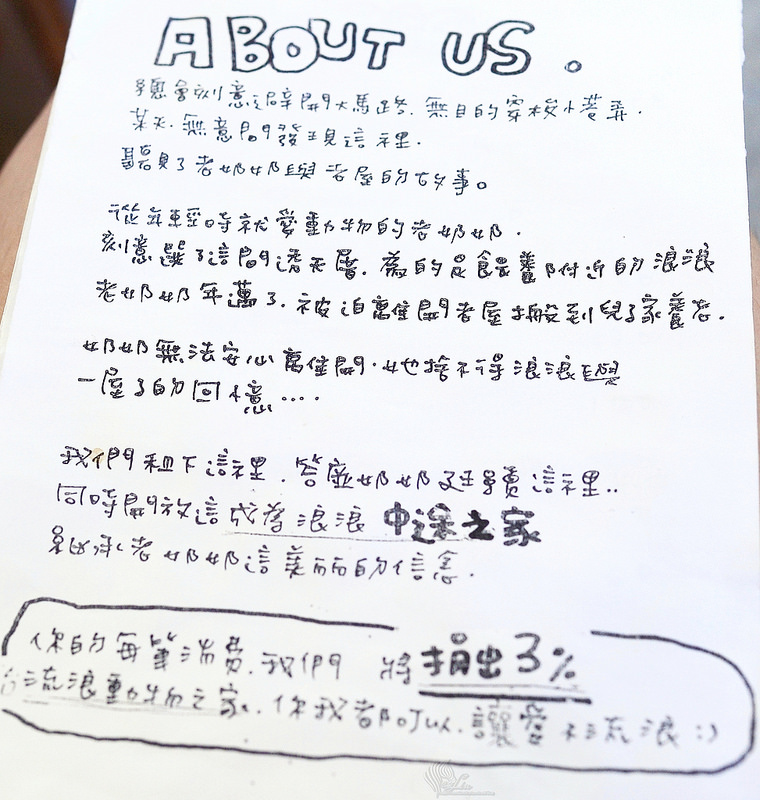 ABOUT US.
總會刻意避開大馬路.無目的穿梭小巷弄.
某天.無意間發現這裡.
聽見了老奶奶與老屋的故事。
從年輕時就愛動物的老奶奶.
刻意選了這間透天厝.為的是餵養附近的浪浪
老奶奶年邁了.被迫離開老屋搬到兒子家養老.
奶奶無法安心離開.她捨不得浪浪與
一屋子的回憶....
我們租下這裡.答應奶奶延續這裡..
同時開放這成為浪浪 中途之家
繼承老奶奶這美麗的信念.
你的每筆消費.我們 將捐出3%
台流浪動物之家.你我都可以.讓愛不流浪:)